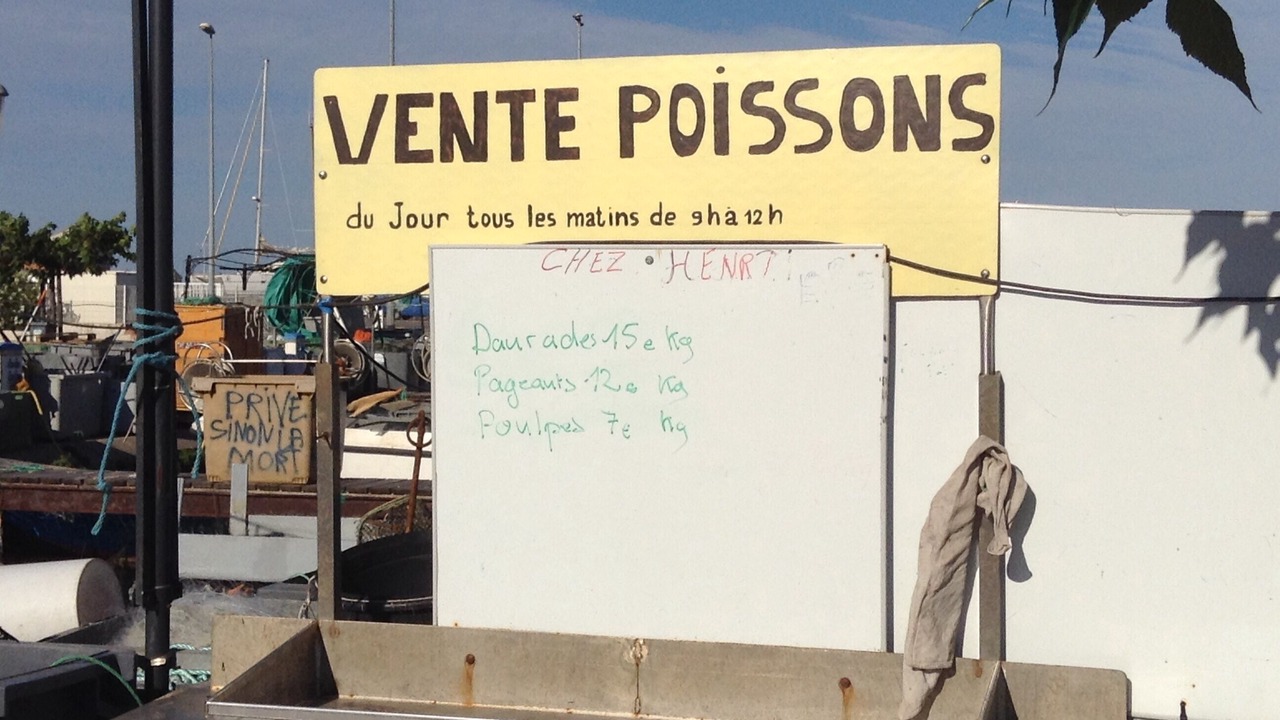 VENTE POISSONS
du Jour tous les matins de 9h à 12h
CHEZ HENRI
Daurades 15e Kg
Pageauts 12e Kg
Poulpes 7e Kg
PRIVE
SINON LA
MORT